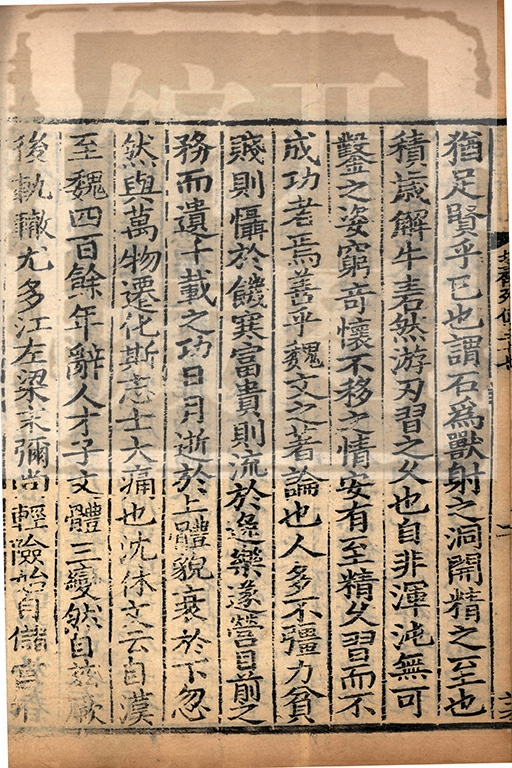 猶足賢乎已也謂石爲獸射之洞開精之至也
積歲解牛砉然游刃習之久也自非渾沌無可
鑿之姿窮奇懷不移之情安有至精久習而不
成功者焉善乎魏文之著論也人多不彊力貧
賤則懾於饑寒富貴則流於逸樂遂營目前之
務而遺千載之功日月逝於上體貌衰於下忽
然與萬物遷化斯志士大痛也沈休文云自漢
至魏四百餘年辭人才子文體三變然自兹厥
後軌轍尤多江左梁末彌尚輕險始自儲宮